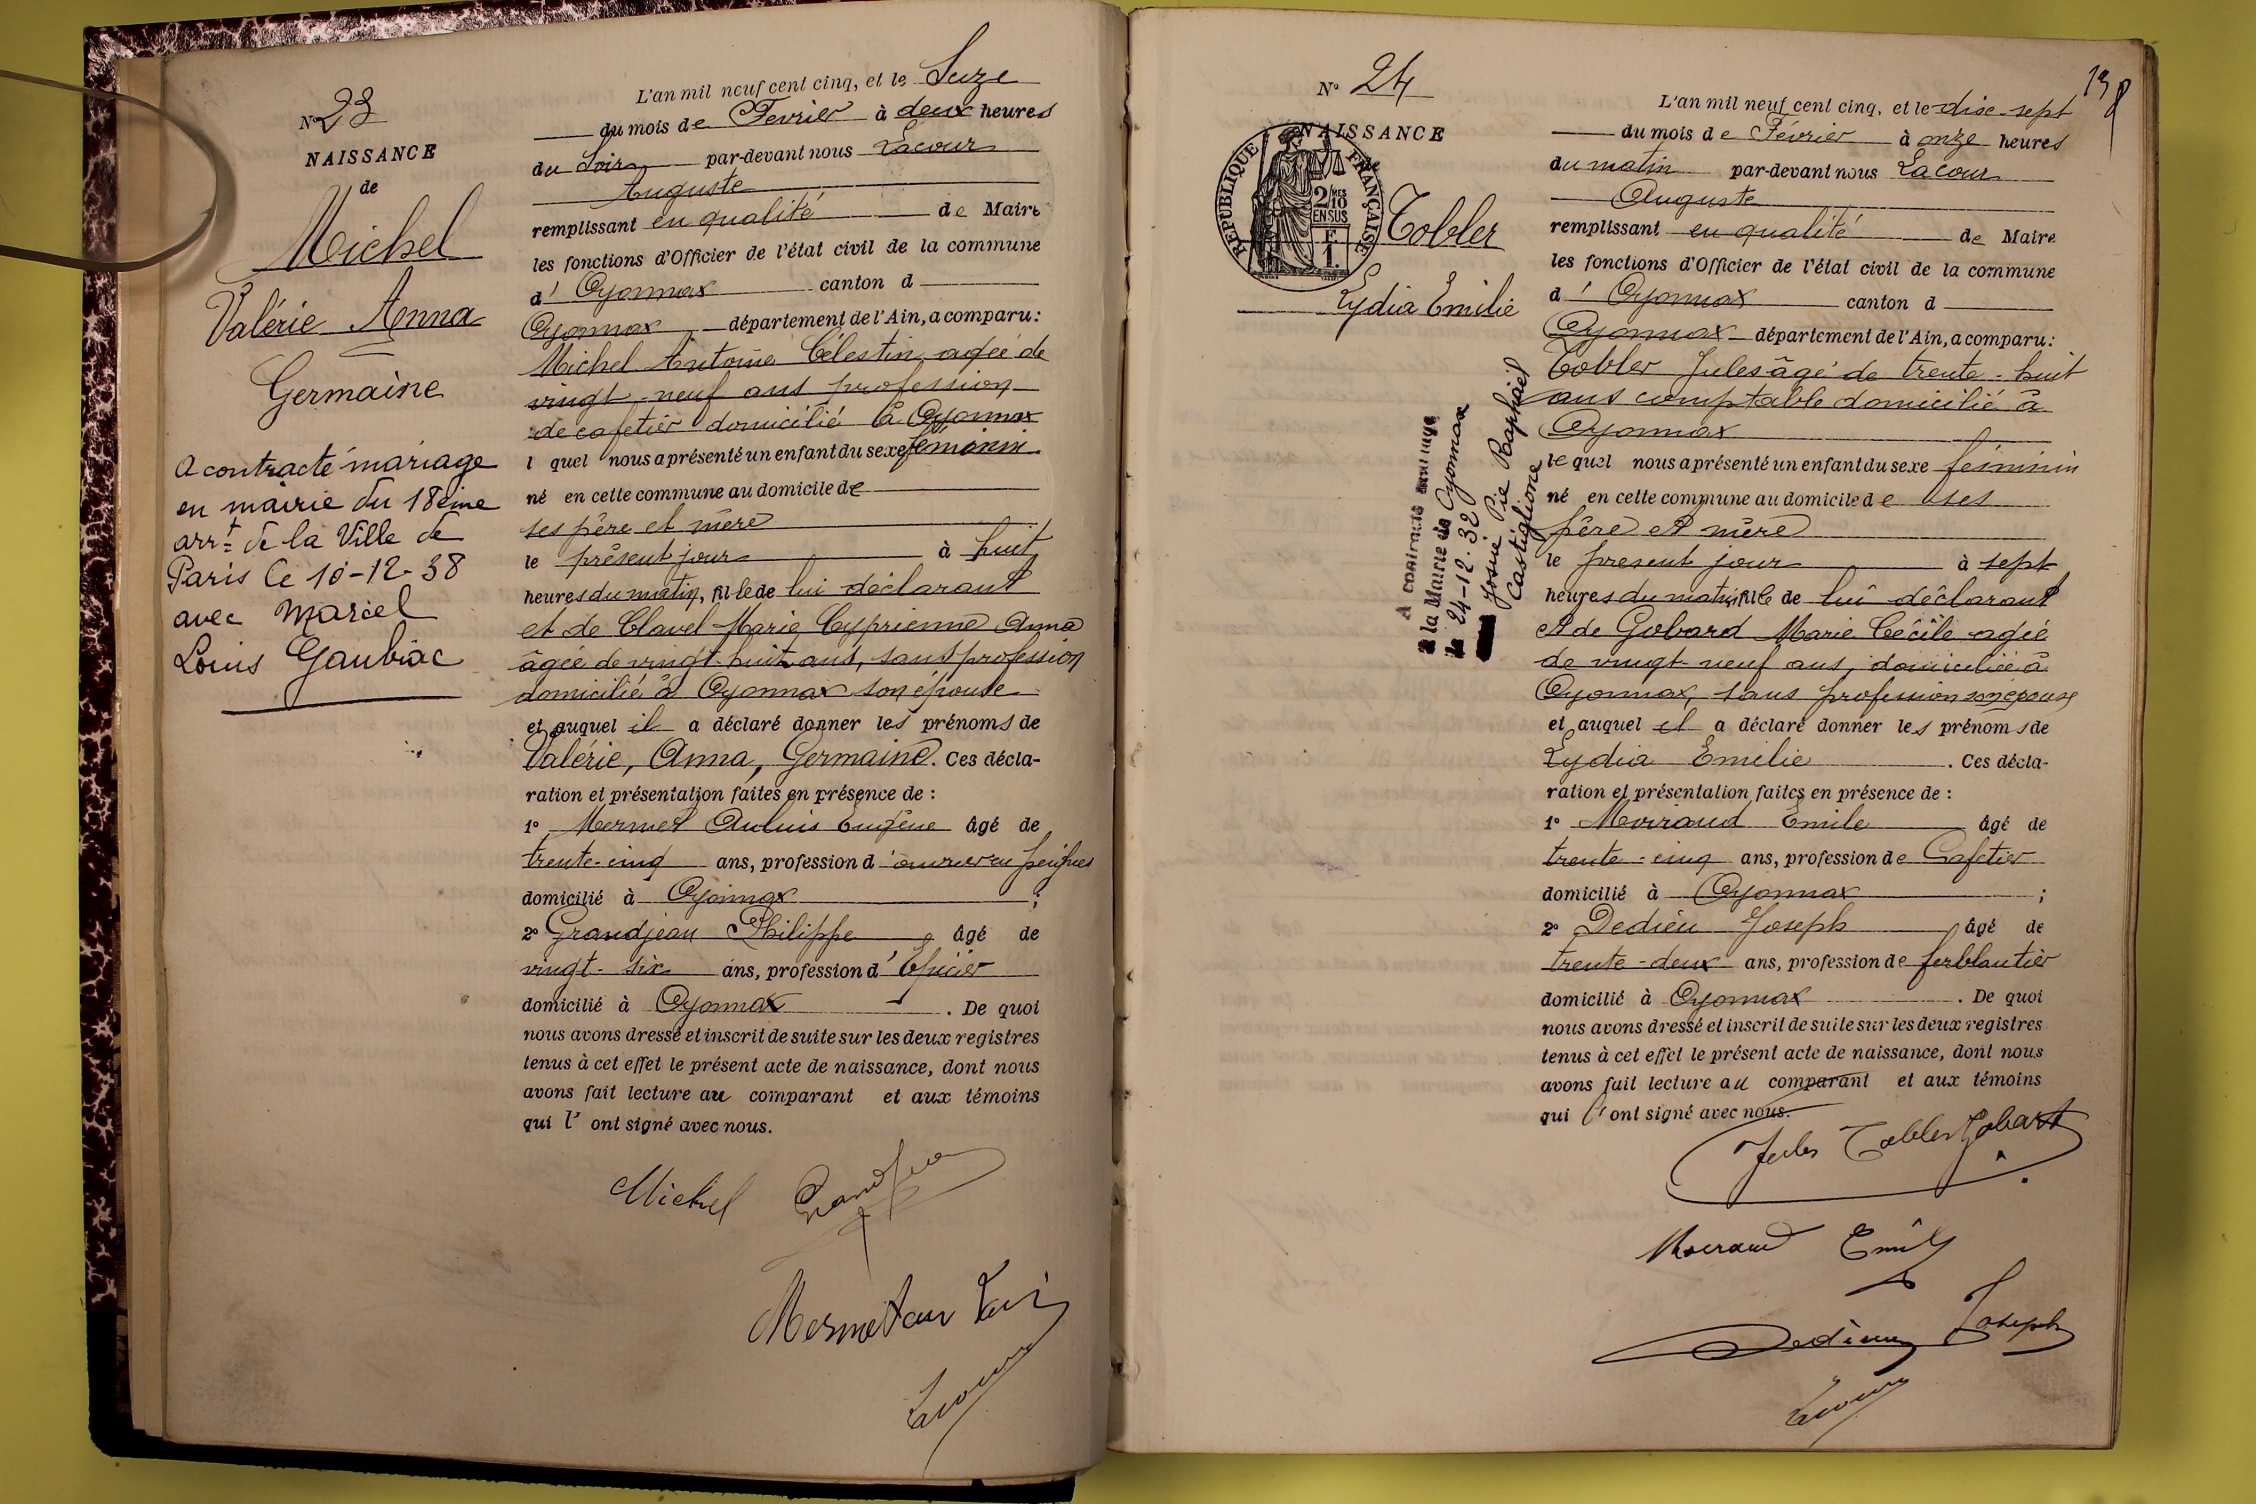 N° 23
NAISSANCE
de
Michel
Valérie Anna
Germaine
A contracté mariage
en mairie du 18ème
arrt de la Ville de
Paris le 10-12-38
avec Marcel
Louis Gaubiac
L'an mil neuf cent cinq, et le Seize
du mois de Fevrier à deux heures
du Soir par-devant nous Lacour
Auguste
remplissant en qualité de Maire
les fonctions d'Officier de l'état civil de la commune
d' Oyonnax canton d
Oyonnax département de l'Ain, a comparu:
Michel Antoine Célestin agée de
vingt-neuf ans profession
de cafetier domicilié à Oyonnax
l quel nous a présenté un enfant du sexe féminin
né en cette commune au domicile de
ses père et mère
le présent jour à huit
heures du matin, fille de lui déclarant
et de Clavel Marie Cyprienne Anna
âgée de vingt-huit ans, sans profession
domicilié à Oyonnax son épouse
et auquel il a déclaré donner les prénoms de
Valérie, Anna, Germaine. Ces décla-
ration et présentation faites en présence de :
1° Mermet Eugène âgé de
trente-cinq ans, profession d'ouvrier en peignes
domicilié à Oyonnax ;
2° Grandjean Philippe, âgé de
vingt-six ans, profession d'Epicier
domicilié à Oyonnax. De quoi
nous avons dressé et inscrit de suite sur les deux registres
tenus à cet effet le présent acte de naissance, dont nous
avons fait lecture au comparant et aux témoins
qui l' ont signé avec nous.
Michel Grandjean
Lacour
138
N° 24
NAISSANCE
RÉPUBLIQUE FRANÇAISE
2/10 MES
EN SUS
F.
1.
Tobler
Lydia Emilie
à la Mairie de Oyonnax
le 24-12-32
Josué Pie Raphaël
Castiglione
L'an mil neuf cent cinq, et le dix-sept
du mois de Février à onze heures
du matin par-devant nous Lacour
Auguste
remplissant en qualité de Maire
les fonctions d'Officier de l'état civil de la commune
d' Oyonnax canton d
Oyonnax département de l'Ain, a comparu:
Tobler Jules âgé de trente-huit
ans comptable domicilié à
Oyonnax
le quel nous a présenté un enfant du sexe féminin
né en cette commune au domicile de ses
père et mère
le présent jour à sept
heures du matin, fille de lui déclarant
et de Gobard Marie Cécile agée
de vingt-neuf ans, domiciliée à
Oyonnax, sans profession son épouse
et auquel il a déclaré donner les prénoms de
Lydia Emilie. Ces décla-
ration et présentation faites en présence de :
1° Moiraud Emile âgé de
trente-cinq ans, profession de Cafetier
domicilié à Oyonnax ;
2° Dedieu Joseph âgé de
trente-deux ans, profession de ferblantier
domicilié à Oyonnax. De quoi
nous avons dressé et inscrit de suite sur les deux registres
tenus à cet effet le présent acte de naissance, dont nous
avons fait lecture au comparant et aux témoins
qui l' ont signé avec nous.
Jules Tobler Gobart
Moiraud Emile
Dedieu Joseph
Lacour